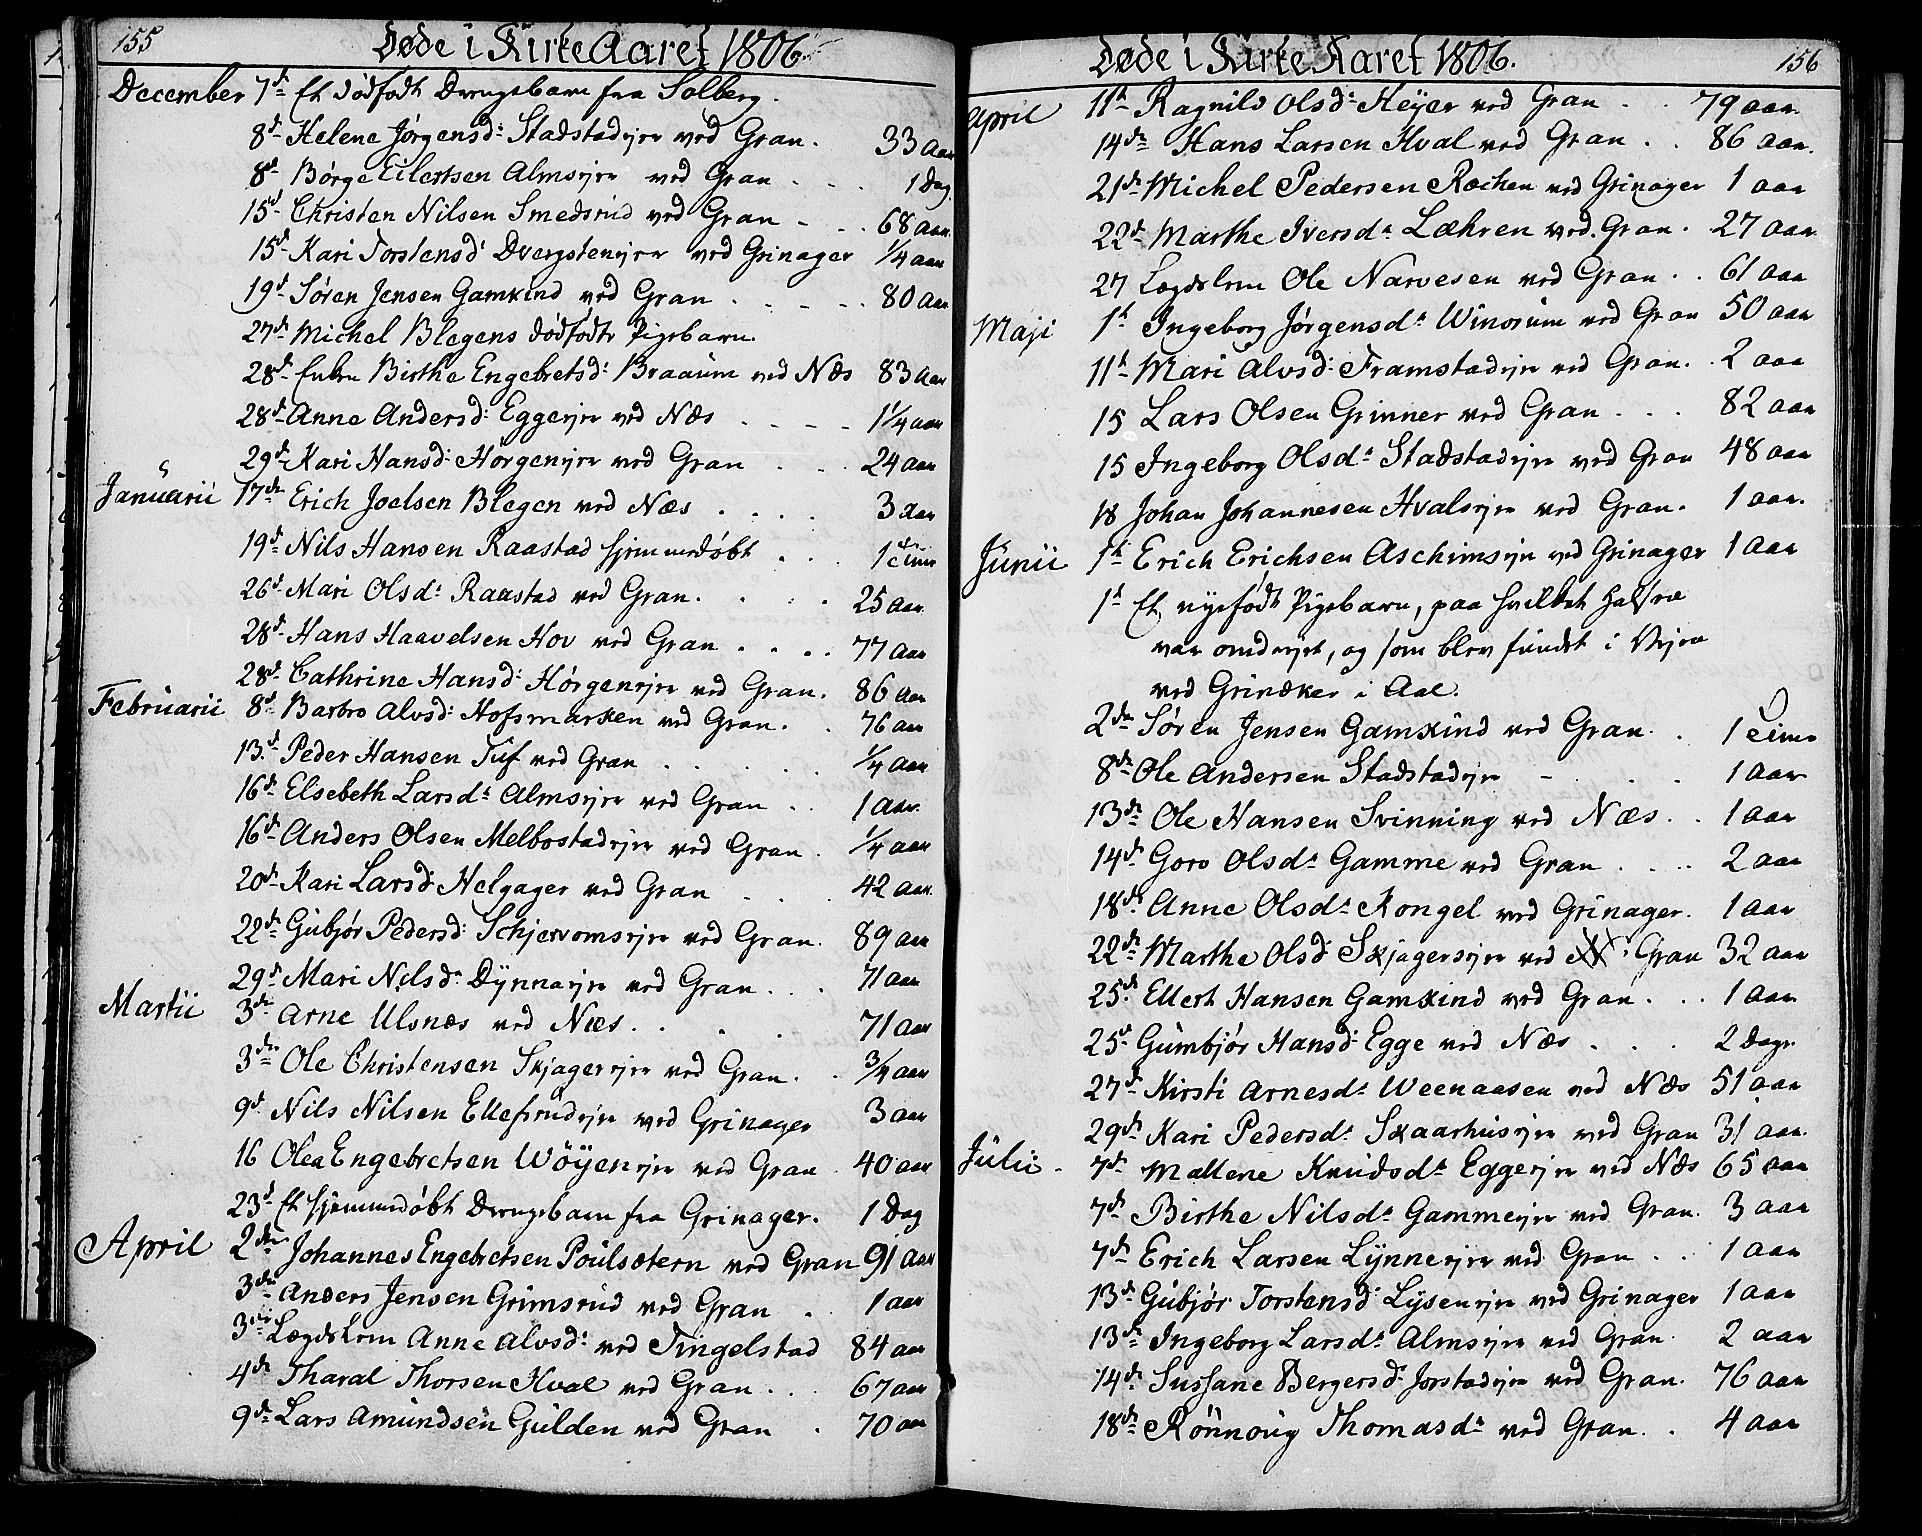 155 Døde i Kirke Aaret 1806.
December 7de Et dødfødt Drengebarn fra Solberg.
8de Helene Jørgensd: Stadstadejre ved Gran. 33 aar
8de Børge Eilertsen Almsejre ved Gran 1 Dag.
15de Christen Nilsen Smedsrud ved Gran 68 aar.
15de Kari Torstensd: Dvergstenejre ved Grinager 1/4 aar
19de Søren Jensen Gamkind ved Gran 80 aar
27de Michel Blegens dødfødte Pigebarn.
28de Enken Birthe Engebretsd: Braaum ved Næs 83 aar
28de Anne Andersd: Eggeejre ved Næs 1 1/4 aar
29de Kari Hansd: Hørgenejre ved Gran 24 aar
Januarii 17de Erich Joelsen Blegen ved Næs 3 aar
19de Nils Hansen Raastad hjemmedøbt 1 Time
26de Mari Olsd: Raastad ved Gran. 25 aar.
28de Hans Haavelsen Hov ved Gran 77 aar
28de Cathrine Hansd: Hørgenejre ved Gran. 86 aar
Februarii 8de Barbro Alvsd: Hofsmarken ved Gran. 76 aar
13de Peder Hansen Tuf ved Gran 1/4 aar
16de Elsebeth Larsd: Almsejre ved Gran 1 aar.
16de Anders Olsen Melbostadejre ved Gran 1/4 aar
20de Kari Larsd: Helgager ved Gran 42 aar.
22de Gubjør Pedersd: Schjervomsejre ved Gran. 89 aar
29de Mari Nilsd: Dynnaejre ved Gran 71 aar
Martii 3die Arne Ulsnæs ved Næs. 71 aar
3die Ole Christensen Skjagerejre ved Gran. 3/4 aar
9de Nils Nilsen Ellefsrudejre ved Grinager 3 aar
16 Olea Engebretsen Wøyenejre ved Gran 40 aar
23de Et hjemmedøbt Drengebarn fra Grinager. 1 Dag
April 2den Johannes Engebretsen Poulsætern ved Gran 91 aar
3die Anders Jensen Grimsrud ved Gran 1 aar
3die Lægdslem Anne Alvsd: ved Tingelstad 84 aar
4de Tharal Thorsen Hval ved Gran 67 aar
9de Lars Amundsen Gulden ved Gran 70 aar
Døde i Kirke Aaret 1806. 156
April 11te Ragnild Olsd: Heyer ved Gran 79 aar.
14de Hans Larsen Hval ved Gran 86 aar.
21de Michel Pedersen Ræcken ved Grinager 1 aar
22de Marthe Iversd: Læhren ved Gran. 27 aar.
27 Lægdslem Ole Narvesen ved Gran 61 aar
Maji 1te Ingeborg Jørgensd: Winorum ved Gran 50 aar
11te Mari Alvsd: Framstadejre ved Gran. 2 aar
15 Lars Olsen Grinner ved Gran 82 aar
15 Ingeborg Olsd: Stadstadejre ved Gran 48 aar
18 Johan Johannesen Hvalsejre ved Gran. 1 aar.
Junii 1te Erich Erichsen Aschimsejre ved Grinager 1 aar
1te Et nyefødt Pigebarn, paa hvilket Halsen
var omdrejet, og som blev fundet i Vejen
ved Grinæker i Aal.
2den Søren Jensen Gamkind ved Gran 1 Time
8de Ole Andersen Stadstadejre 1 aar
13de Ole Hansen Svinning ved Næs. 1 aar
14de Goro Olsd: Gamme ved Gran 2 aar
18de Anne Olsd: Kongel ved Grinager. 1 aar
22de Marthe Olsd: Skjagersejre ved Gran 32 aar
25de Ellert Hansen Gamkind ved Gran 1 aar
25de Gumbjør Hansd: Egge ved Næs 2 Dage
27de Kirsti Arnesd: Weenaasen ved Næs 51 aar
29de Kari Pedersd: Skaarhusejre ved Gran 31 aar.
Julii 7de Mallene Knudsd: Eggeejre ved Næs 65 aar
7de Birthe Nilsd: Gammeejre ved Gran. 3 aar
7de Erich Larsen Lynneejre ved Gran 1 aar
13de Gubjør Torstensd: Lysenejre ved Grinager 1 aar
13de Ingeborg Larsd: Almsejre ved Gran 2 aar
14de Sussane Bergersd: Jorstadejre ved Gran. 76 aar
18de Rønnoug Thomasd: ved Gran. 4 aar